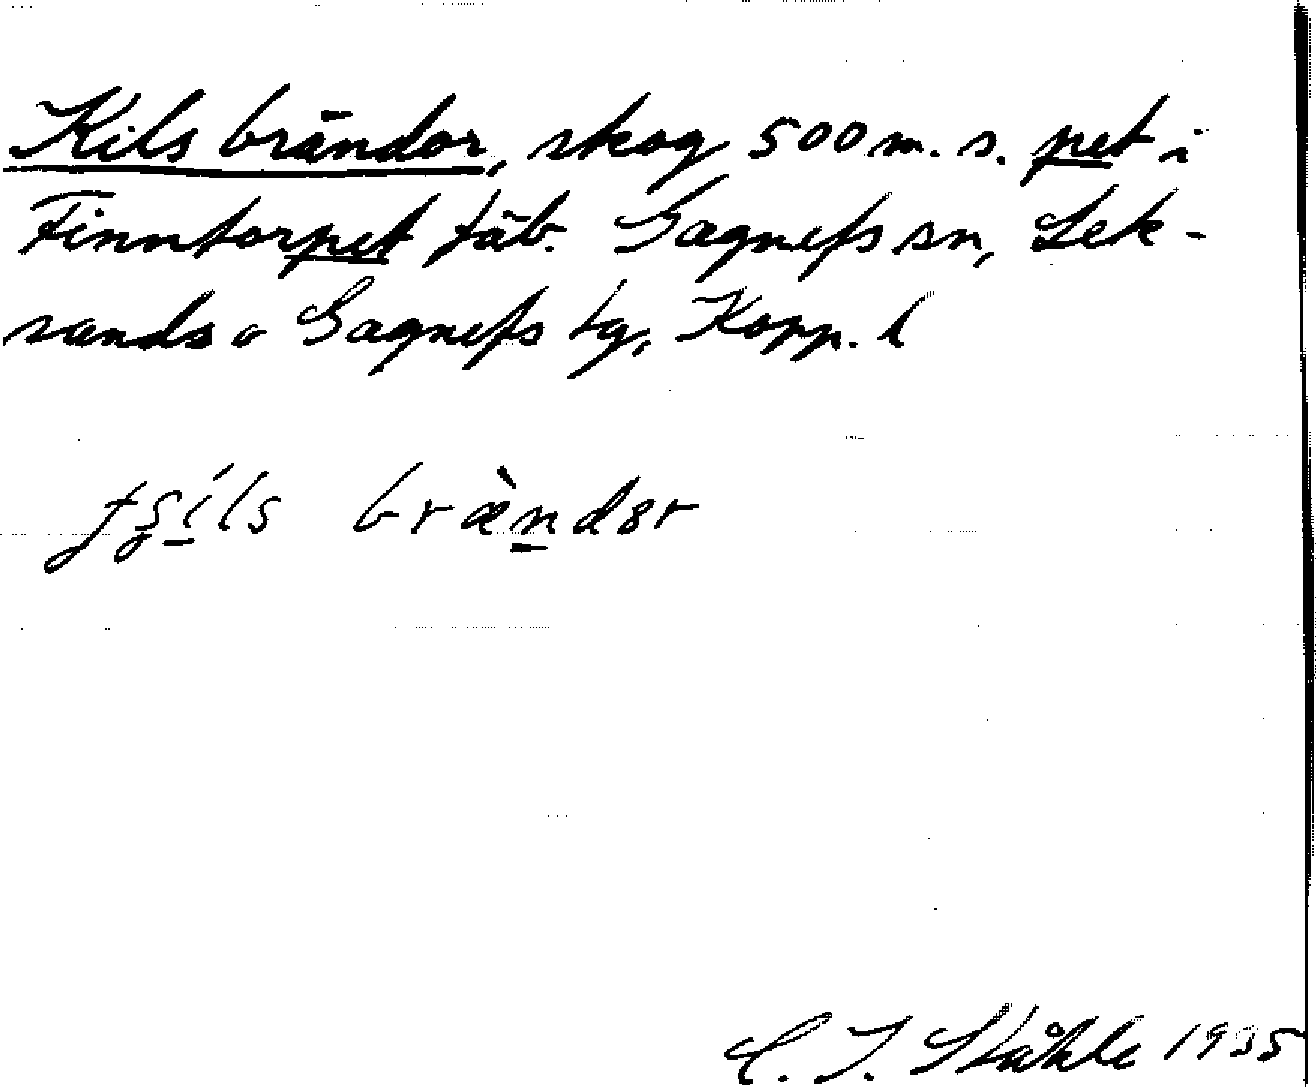 Kils brändor, skog 500 m. s. pet i
Finntorpet fäb. Gagnefs sn, Lek-
sands o Gagnefs tg, Kopp. l
brændər
C. I. Ståhle 1935